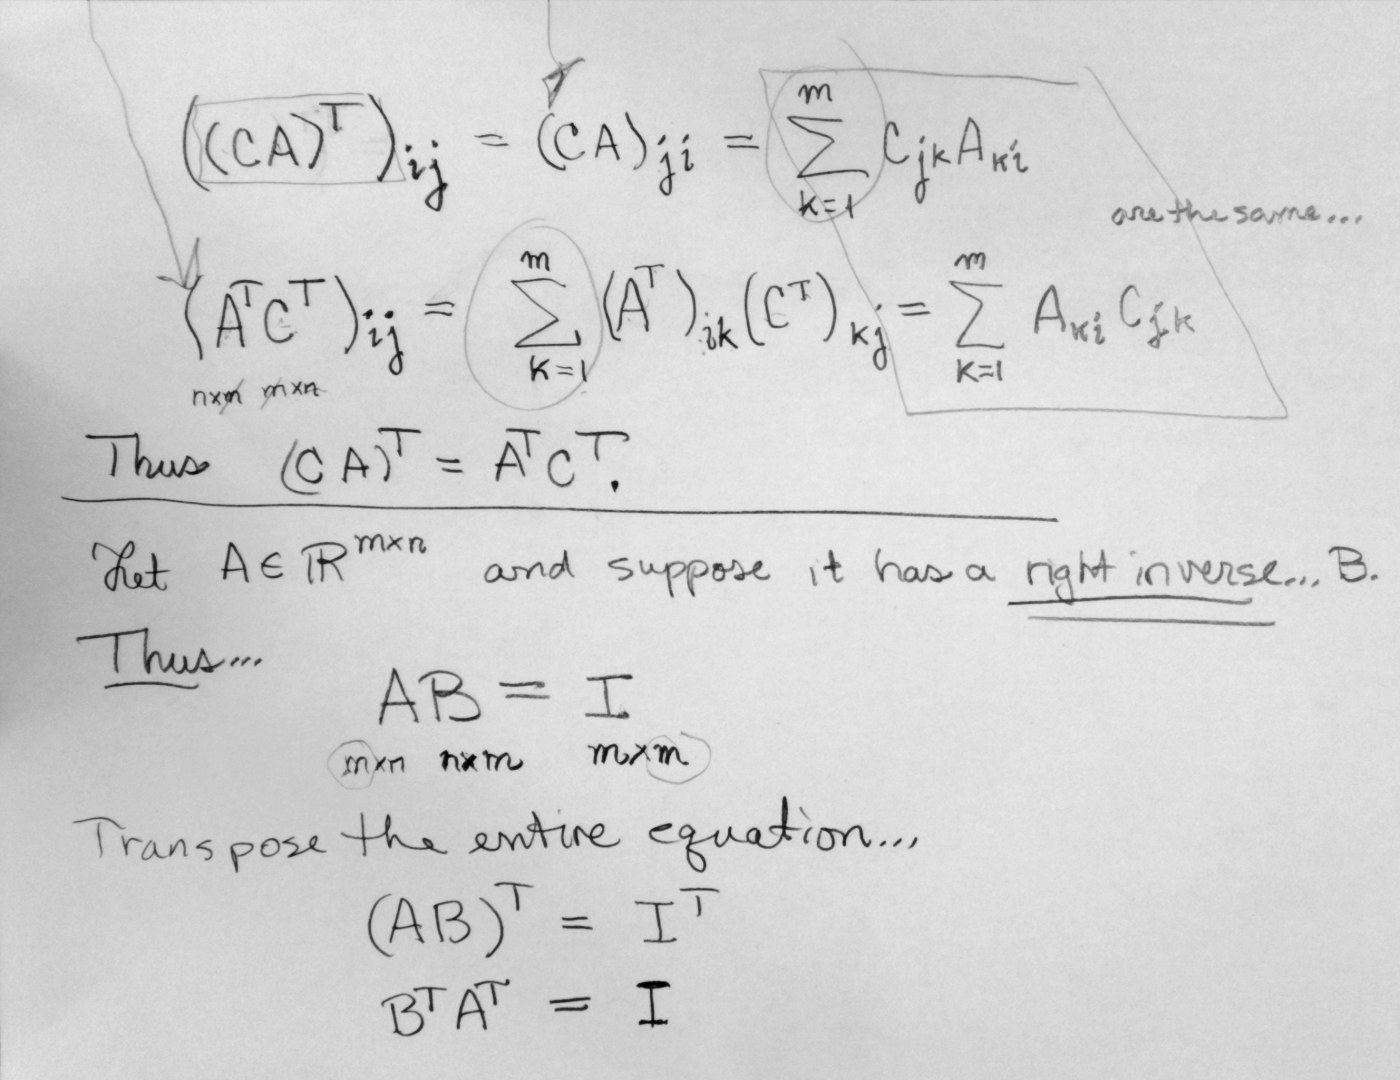 ((CA)ᵀ)ᵢⱼ = (CA)ⱼᵢ = ∑_{k=1}^{m} C_{jk} A_{ki}
are the same...
(AᵀCᵀ)ᵢⱼ = ∑_{k=1}^{m} (Aᵀ)_{ik} (Cᵀ)_{kj} = ∑_{k=1}^{m} A_{ki} C_{jk}
n×m m×n
Thus (CA)ᵀ = AᵀCᵀ.
Let A ∈ ℝ^{m×n} and suppose it has a right inverse... B.
Thus...
AB = I
m×n n×m m×m
Transpose the entire equation...
(AB)ᵀ = Iᵀ
BᵀAᵀ = I